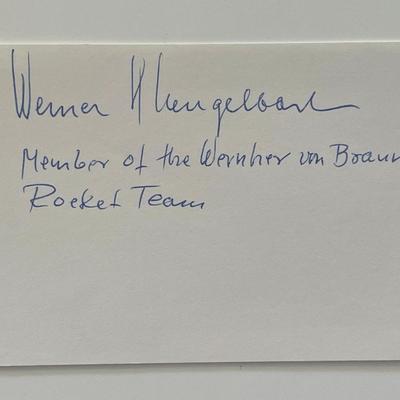 Werner K Gengelbach
Member of the Wernher von Braun
Rocket Team